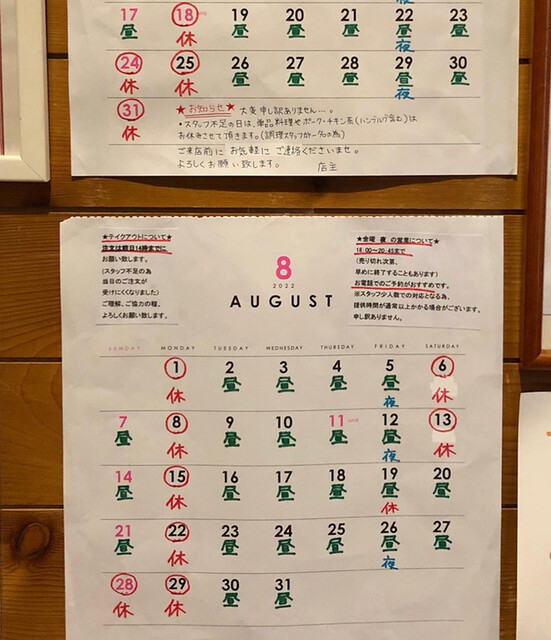 17 18 19 20 21 22 23
昼 休 昼 昼 昼 昼 昼
夜
24 25 26 27 28 29 30
休 休 昼 昼 昼 昼 昼
夜
31
休
★お知らせ★ 大変申し訳ありません…。
・スタッフ不足の日は、単品料理やポーク・チキン系(ハンデルバ含む)は
お休みさせて頂きます。(調理スタッフが一名の為)
ご来店前に お気軽に ご連絡くださいませ。
よろしくお願い致します。 店主
★テイクアウトについて★
注文は前日14時までに
お願い致します。
(スタッフ不足の為
当日のご注文が
受けにくくなりました)
ご理解、ご協力の程、
よろしくお願い致します。
8
2022
AUGUST
★金曜 夜 の営業について★
18:00～20:45まで
(売り切れ次第、
早めに終了することもあります)
お電話でのご予約がおすすめです。
※スタッフ少人数での対応となる為、
提供時間が通常以上かかる場合がございます。
申し訳ありません。
SUNDAY MONDAY TUESDAY WEDNESDAY THURSDAY FRIDAY SATURDAY
1 2 3 4 5 6
休 昼 昼 昼 昼 休
夜
7 8 9 10 11 12 13
昼 休 昼 昼 昼 昼 休
夜
14 15 16 17 18 19 20
昼 休 昼 昼 昼 昼 昼
休
21 22 23 24 25 26 27
昼 休 昼 昼 昼 昼 昼
夜
28 29 30 31
休 休 昼 昼